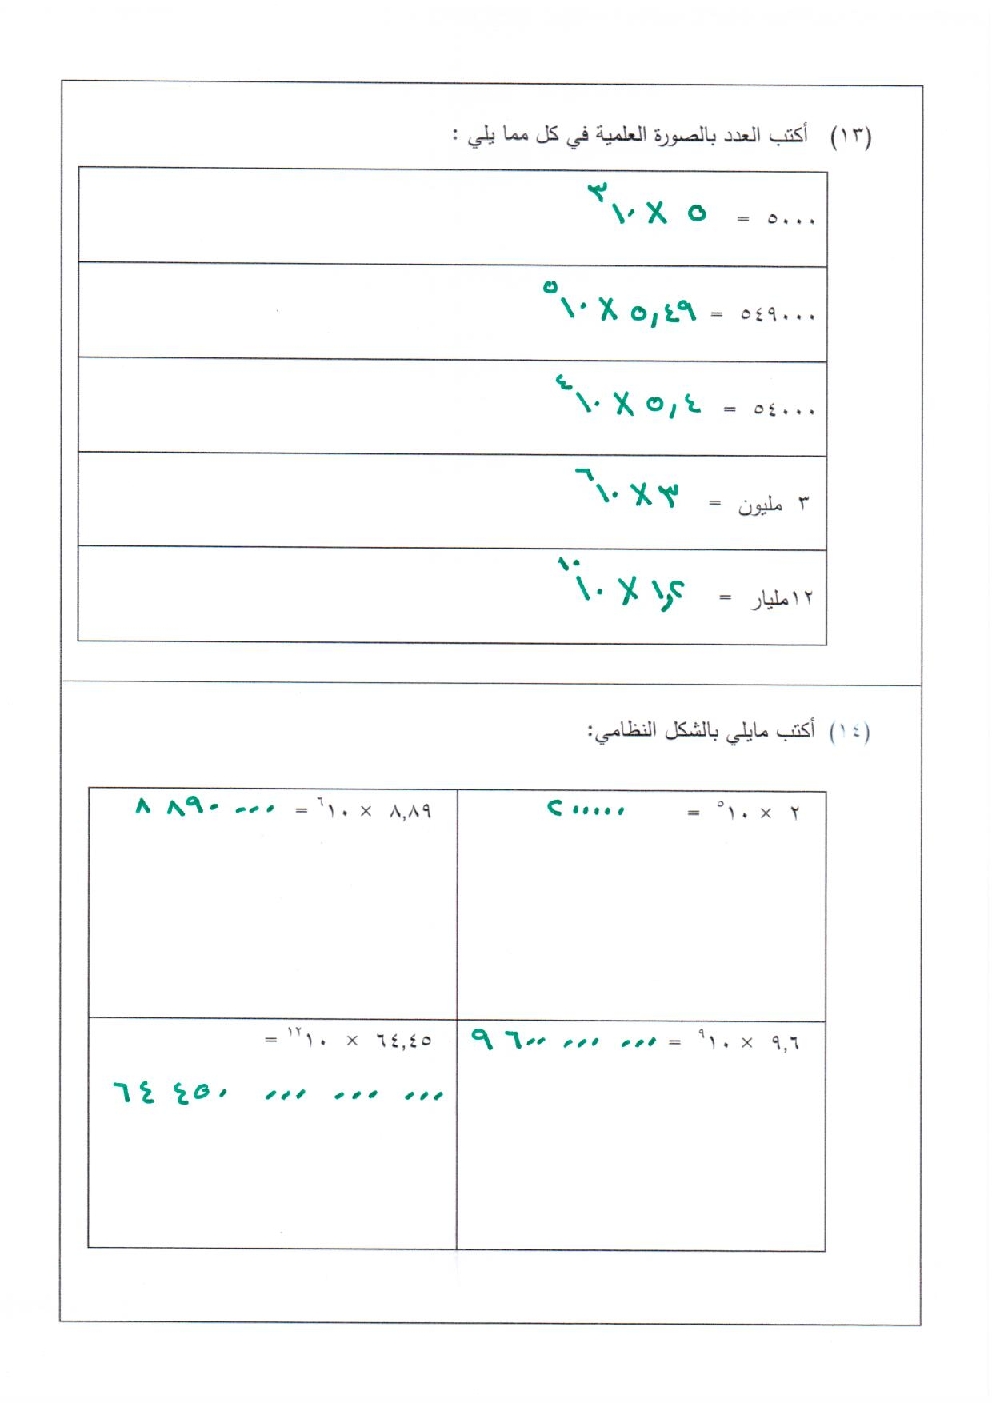 (١٣) أكتب العدد بالصورة العلمية في كل مما يلي :
٥٠٠٠ = ٥ × ١٠^٣
٥٤٩٠٠٠ = ٥,٤٩ × ١٠^٥
٥٤٠٠٠ = ٥,٤ × ١٠^٤
٣ مليون = ٣ × ١٠^٦
١٢مليار = ١,٢ × ١٠^١٠
(١٤) أكتب مايلي بالشكل النظامي:
٢ × ١٠^٥ = ٢٠٠٠٠٠
٨,٨٩ × ١٠^٦ = ٨ ٨٩٠ ٠٠٠
٩,٦ × ١٠^٩ = ٩ ٦٠٠ ٠٠٠ ٠٠٠
٦٤,٤٥ × ١٠^١٢ =
٦٤ ٤٥٠ ٠٠٠ ٠٠٠ ٠٠٠